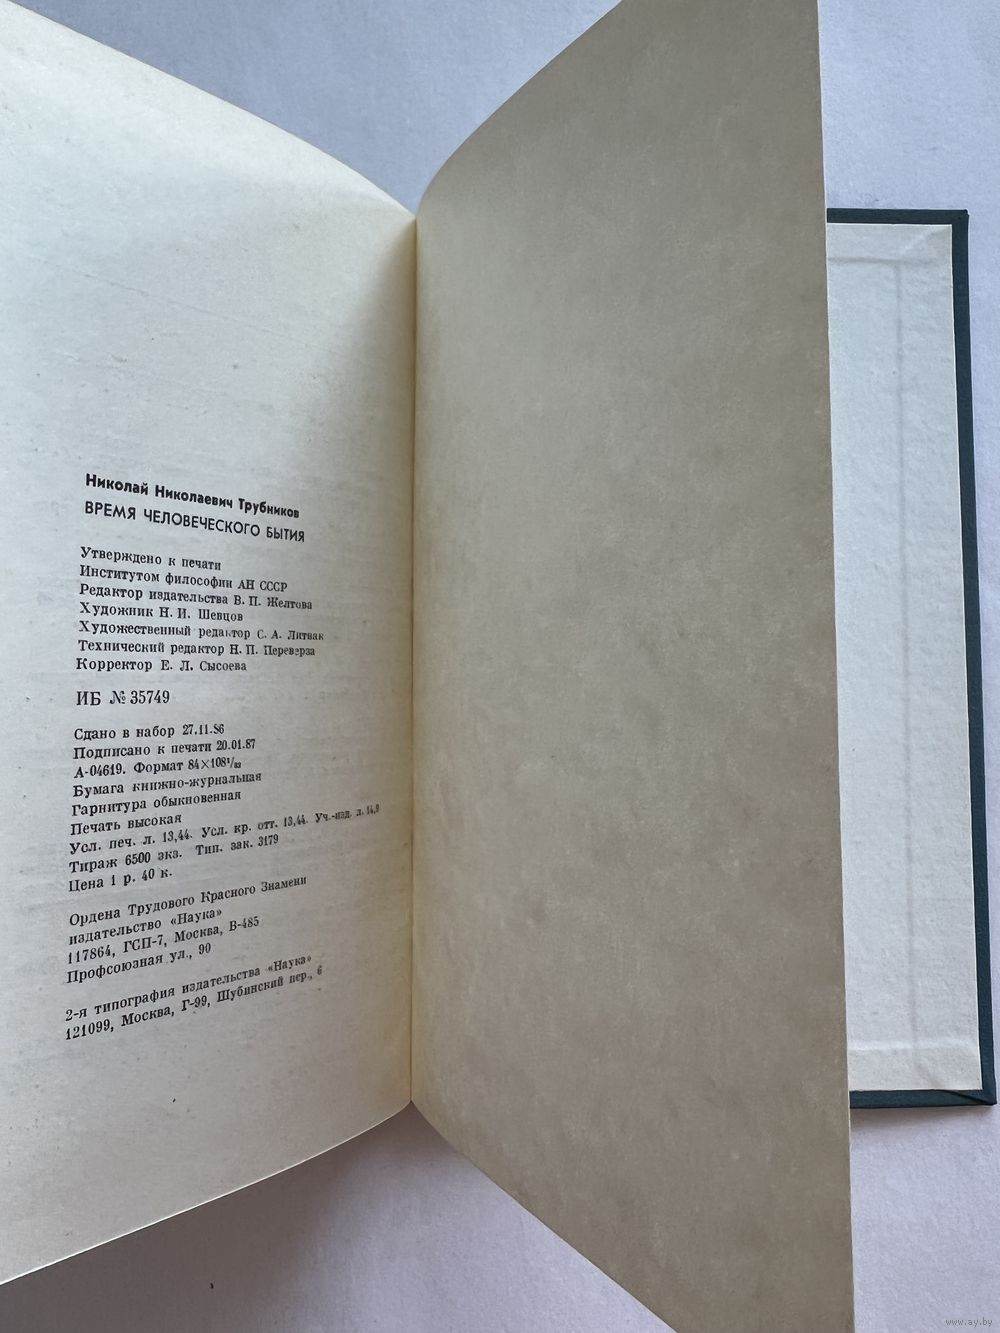 Николай Николаевич Трубников
ВРЕМЯ ЧЕЛОВЕЧЕСКОГО БЫТИЯ
Утверждено к печати
Институтом философии АН СССР
Редактор издательства В. П. Желтова
Художник Н. И. Шевцов
Художественный редактор С. А. Литвак
Технический редактор Н. П. Переверза
Корректор Е. Л. Сысоева
ИБ № 35749
Сдано в набор 27.11.86
Подписано к печати 20.01.87
А-04619. Формат 84×108¹/₃₂
Бумага книжно-журнальная
Гарнитура обыкновенная
Печать высокая
Усл. печ. л. 13,44. Усл. кр. отт. 13,44. Уч.-изд. л. 14,9
Тираж 6500 экз. Тип. зак. 3179
Цена 1 р. 40 к.
Ордена Трудового Красного Знамени
издательство «Наука»
117864, ГСП-7, Москва, В-485
Профсоюзная ул., 90
2-я типография издательства «Наука»
121099, Москва, Г-99, Шубинский пер., 6
www.ay.by